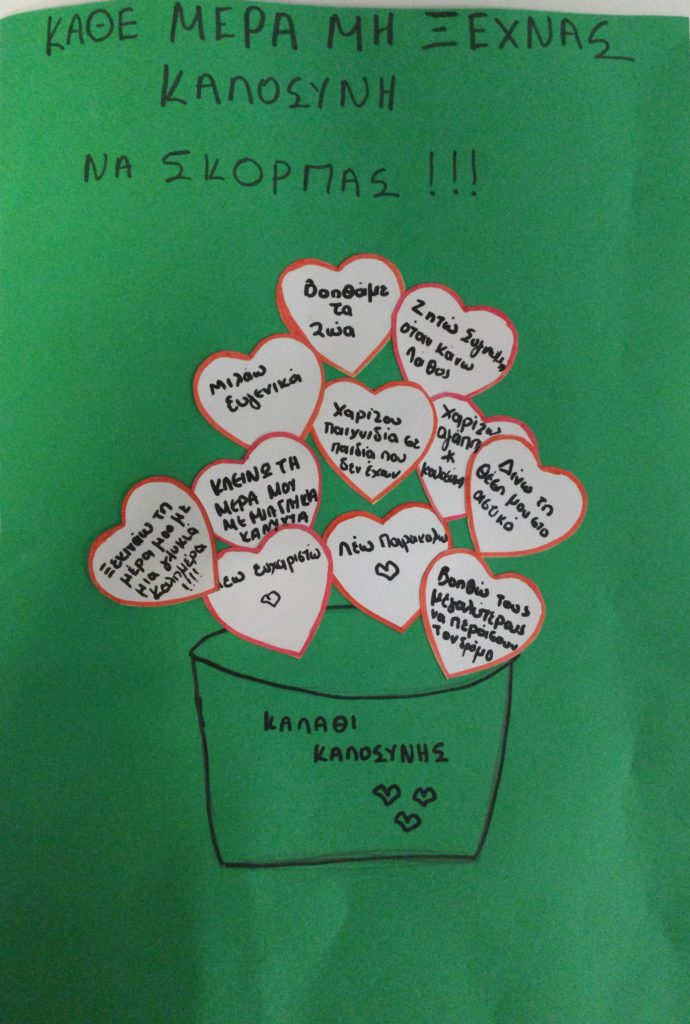 ΚΑΘΕ ΜΕΡΑ ΜΗ ΞΕΧΝΑΣ
ΚΑΛΟΣΥΝΗ
ΝΑ ΣΚΟΡΠΑΣ !!!
Βοηθάμε
τα
ζώα
Ζητώ Συγνώμη
όταν κάνω
λάθος
Μιλάω
Ευγενικά
Χαρίζου
παιχνιδία σε
παιδία που
δεν έχουν
Χαρίζω
αγάπη
Δίνω τη
θέση μου στο
αστικό
ΚΛΕΙΝΩ ΤΗ
ΜΕΡΑ ΜΟΥ
ΜΕ ΜΙΑ ΓΛΥΚΙΑ
ΚΑΛΗΝΥΧΤΑ
Ξεκινάω τη
μέρα μου με
μια γλυκιά
καλημέρα
!!!
Λέω Ευχαριστώ
Λέω Παρακαλώ
Βοηθώ τους
μεγαλύτερους
να περάσουν
τον δρόμο
ΚΑΛΑΘΙ
ΚΑΛΟΣΥΝΗΣ